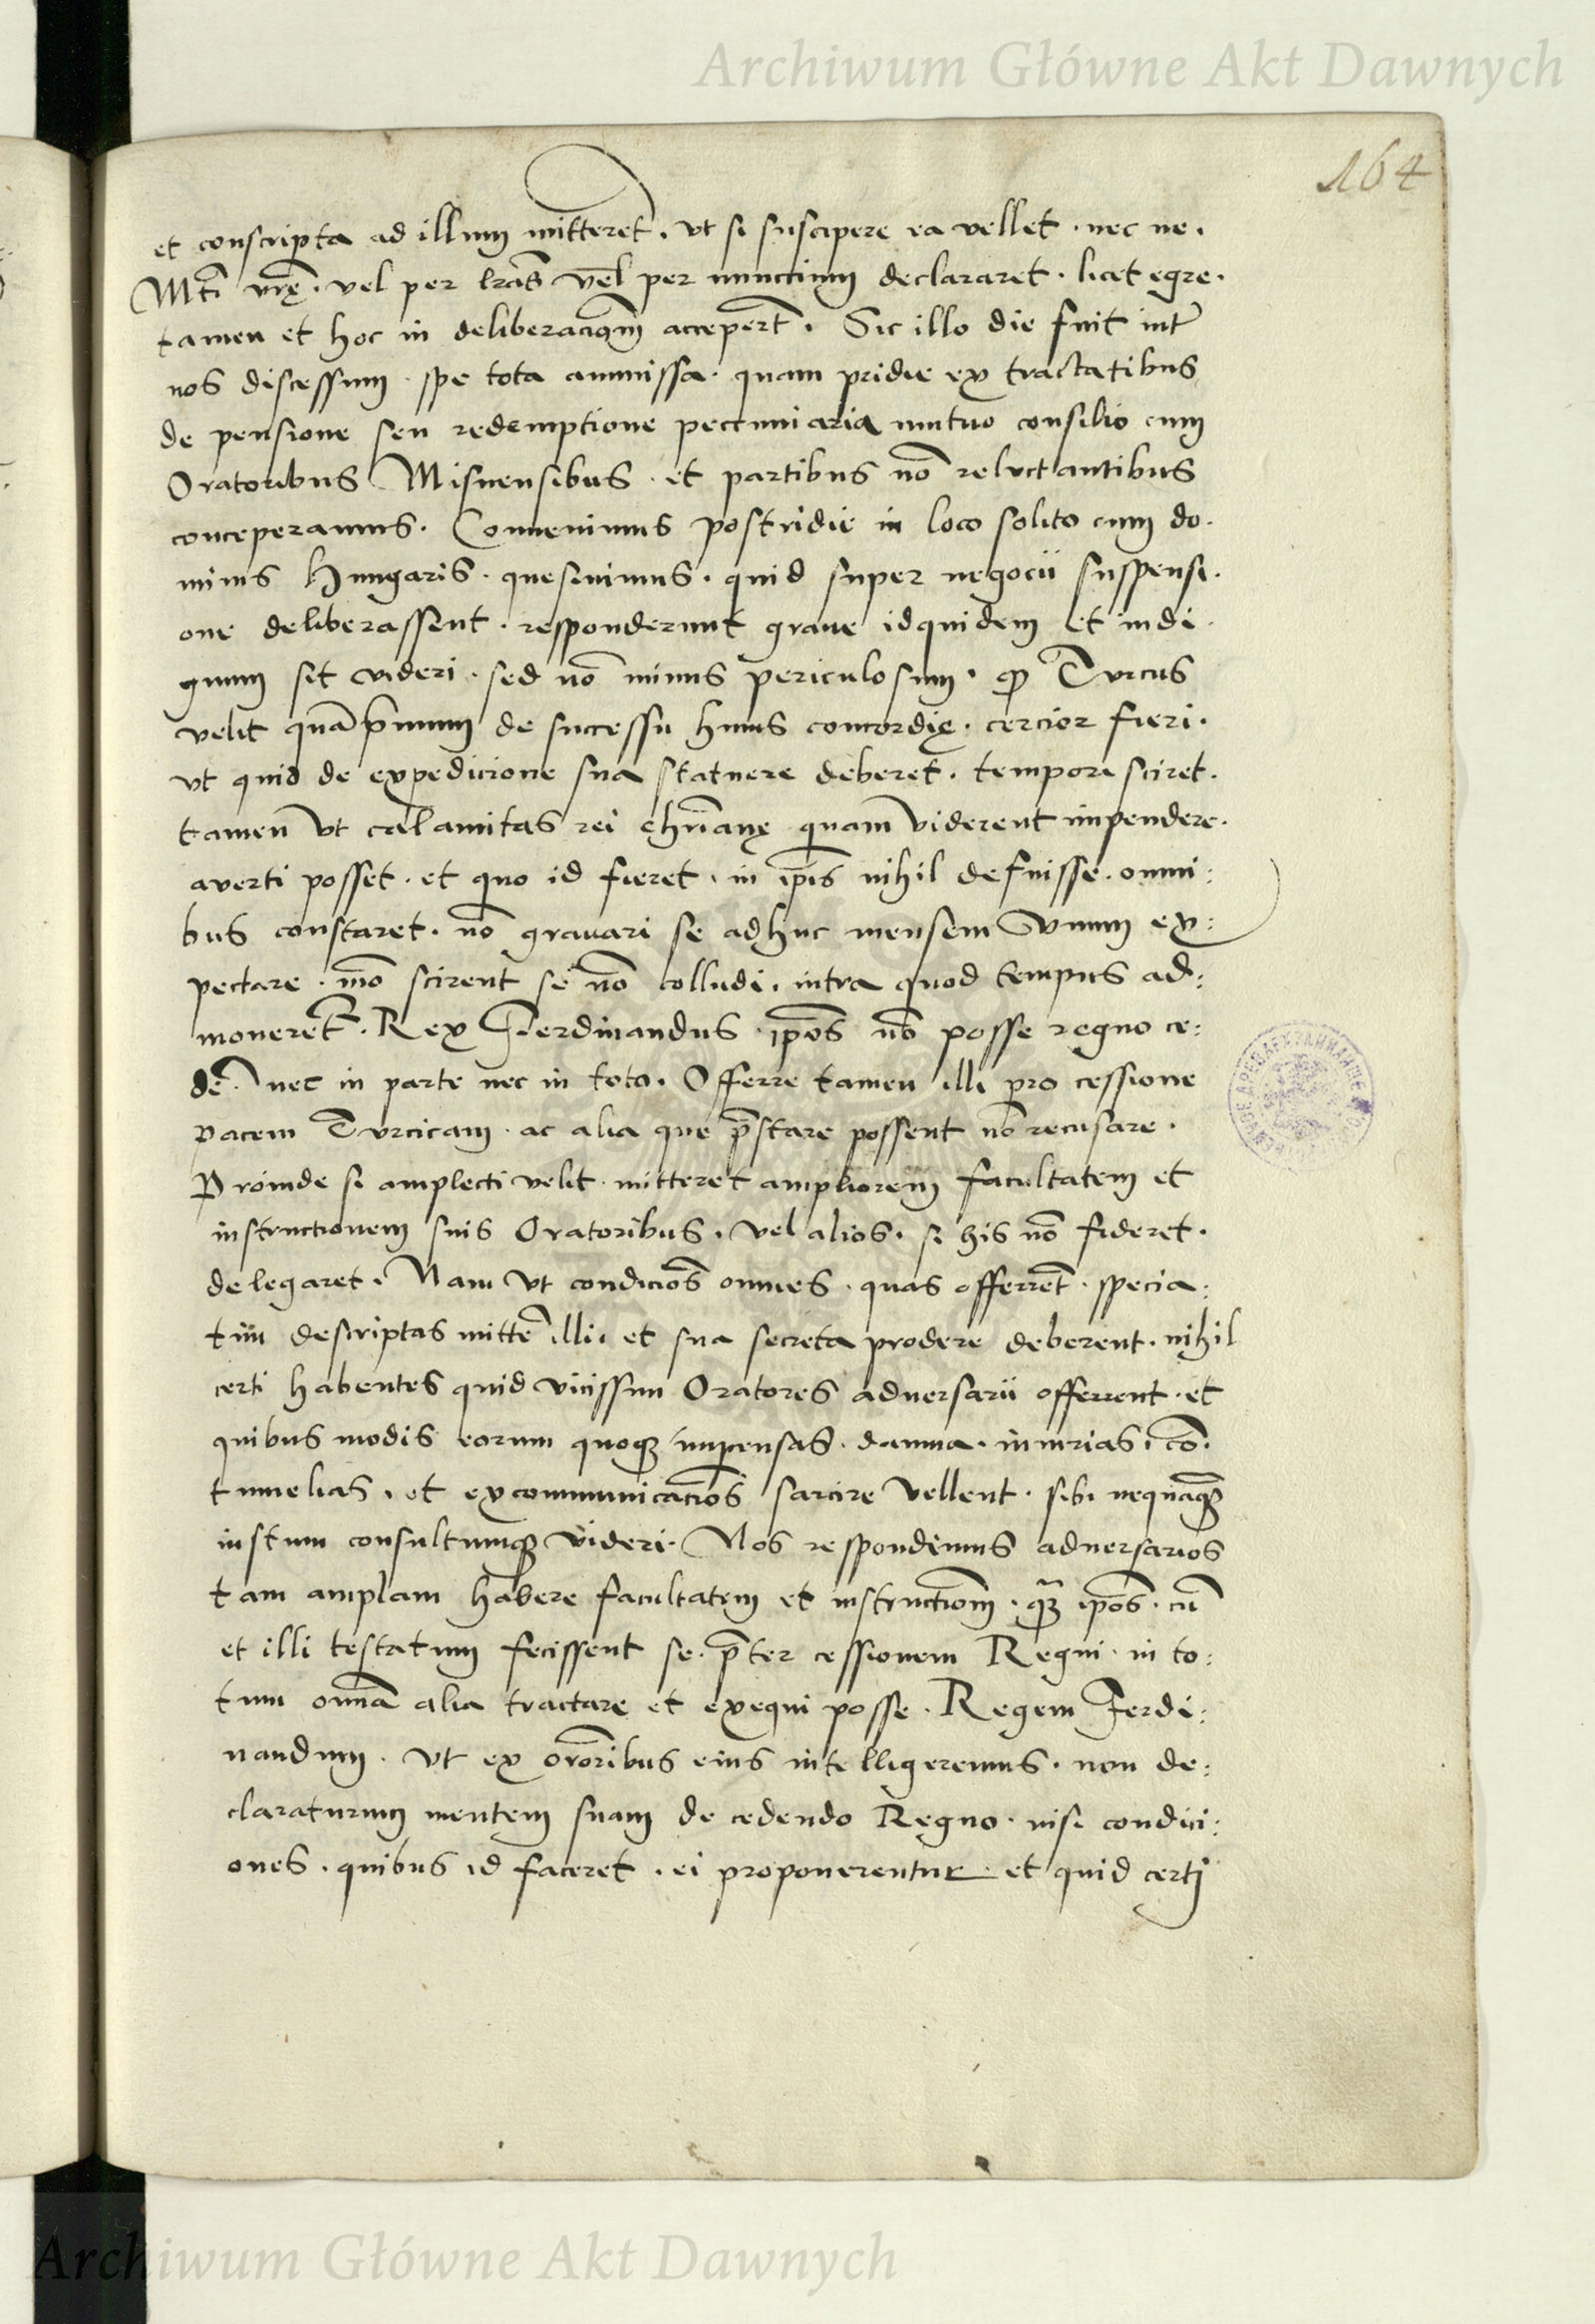 Archiwum Główne Akt Dawnych
164
et conscripta ad illum mitteret. ut si suscipere ea vellet. nec ne.
Mti vrę. vel per lras vel per nunctium declararet. licet egre.
tamen et hoc in deliberacionem accepert. Sic illo die fuit inter
nos discessum. spe tota ammissa. quam pridie ex tractatibus
de pensione seu redemptione pecuniaria mutuo consilio cum
Oratoribus Misnensibus. et partibus nō reluctantibus
conceperamus. Convenimus postridie in loco solito cum do.
minis Hungaris. quesivimus. quid super negocii suspensi.
one deliberassent. responderunt grave idquidem et indi.
gnum sit videri. sed nō minus periculosum. qz Turcus
velit quāprimum de successu huius concordię. cercior fieri.
ut quid de expedicione sua statuere deberet. tempori sciret.
tamen ut calamitas rei chrianę quam viderent impendere.
averti posset. et quo id fieret. in ipis nihil defuisse. omni:
bus constaret. nō gravari se adhuc mensem unum ex:
pectare. mō scirent se nō colludi. intra quod tempus ad:
moneret. Rex Ferdinandus. ipos nō posse regno ce:
de. nec in parte nec in toto. Offerre tamen illi pro cessione
pacem Turcicam. ac alia que pstare possent nō recusare.
Proinde si amplecti velit. mitteret ampliorem facultatem et
instructionem suis Oratoribus. vel alios. si his nō fideret.
delegaret. Nam ut condicios omnes. quas offerret. specia:
tim descriptas mitte illi. et sua secreta prodere deberent. nihil
certi habentes quid vicissim Oratores adversarii offerrent. et
quibus modis eorum quoqz impensas. damna. iniurias. cō.
tumelias. et excommunicacios sarcire vellent. sibi nequaqz
iustum consultumqz videri. Nos respondimus adversarios
tam amplam habere facultatem et instructiom. qz ipos. cū
et illi testatum fecissent se. pter cessionem Regni. in to:
tum omīa alia tractare et exequi posse. Regem Ferdi:
nandum. ut ex ororibus eius intelligeremus. non de:
claraturum mentem suam de cedendo Regno. nisi condici:
ones. quibus id faceret. ei proponerentur. et quid certi
Archiwum Główne Akt Dawnych